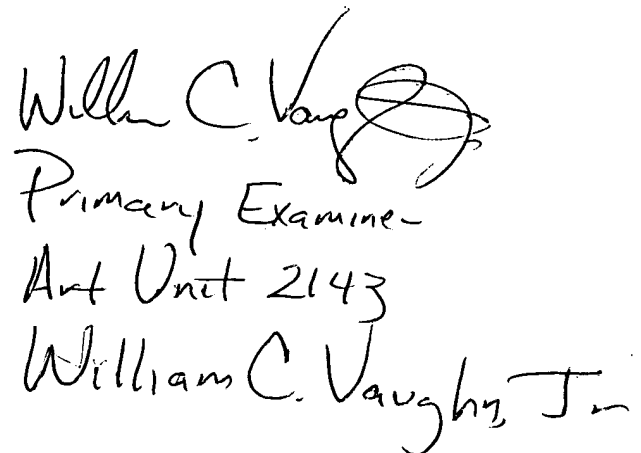 William C. Vaughn, Jr.
Primary Examiner
Art Unit 2143
William C. Vaughn, Jr